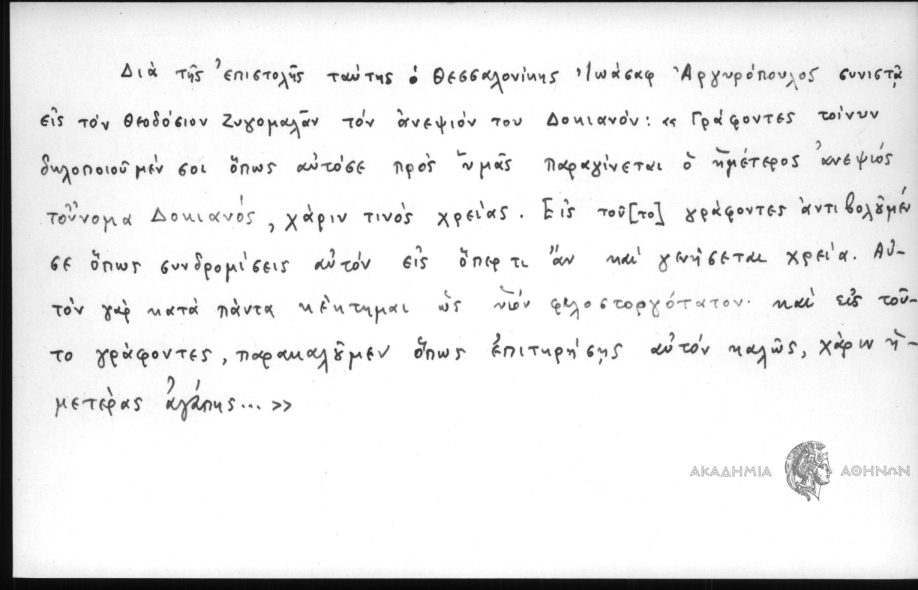 Διὰ τῆς ἐπιστολῆς ταύτης ὁ Θεσσαλονίκης Ἰωάσαφ Ἀργυρόπουλος συνιστᾷ
εἰς τὸν Θεοδόσιον Ζυγομαλᾶν τὸν ἀνεψιόν του Δοκιανόν: «Γράφοντες τοίνυν
δηλοποιοῦμέν σοι ὅπως αὐτόσε πρὸς ὑμᾶς παραγίνεται ὁ ἡμέτερος ἀνεψιός
τοὔνομα Δοκιανός, χάριν τινὸς χρείας. Εἰς τοῦ[το] γράφοντες ἀντιβολοῦμέν
σε ὅπως συνδρομίσεις αὐτόν εἰς ὅπερ τι ἂν καὶ γενήσεται χρεία. Αὐ-
τὸν γὰρ κατὰ πάντα κέκτημαι ὡς υἱόν φιλοστοργότατον· καὶ εἰς τοῦ-
το γράφοντες, παρακαλοῦμεν ὅπως ἐπιτηρήσῃς αὐτόν καλῶς, χάριν ἡ-
μετέρας ἀγάπης... »
ΑΚΑΔΗΜΙΑ ΑΘΗΝΩΝ